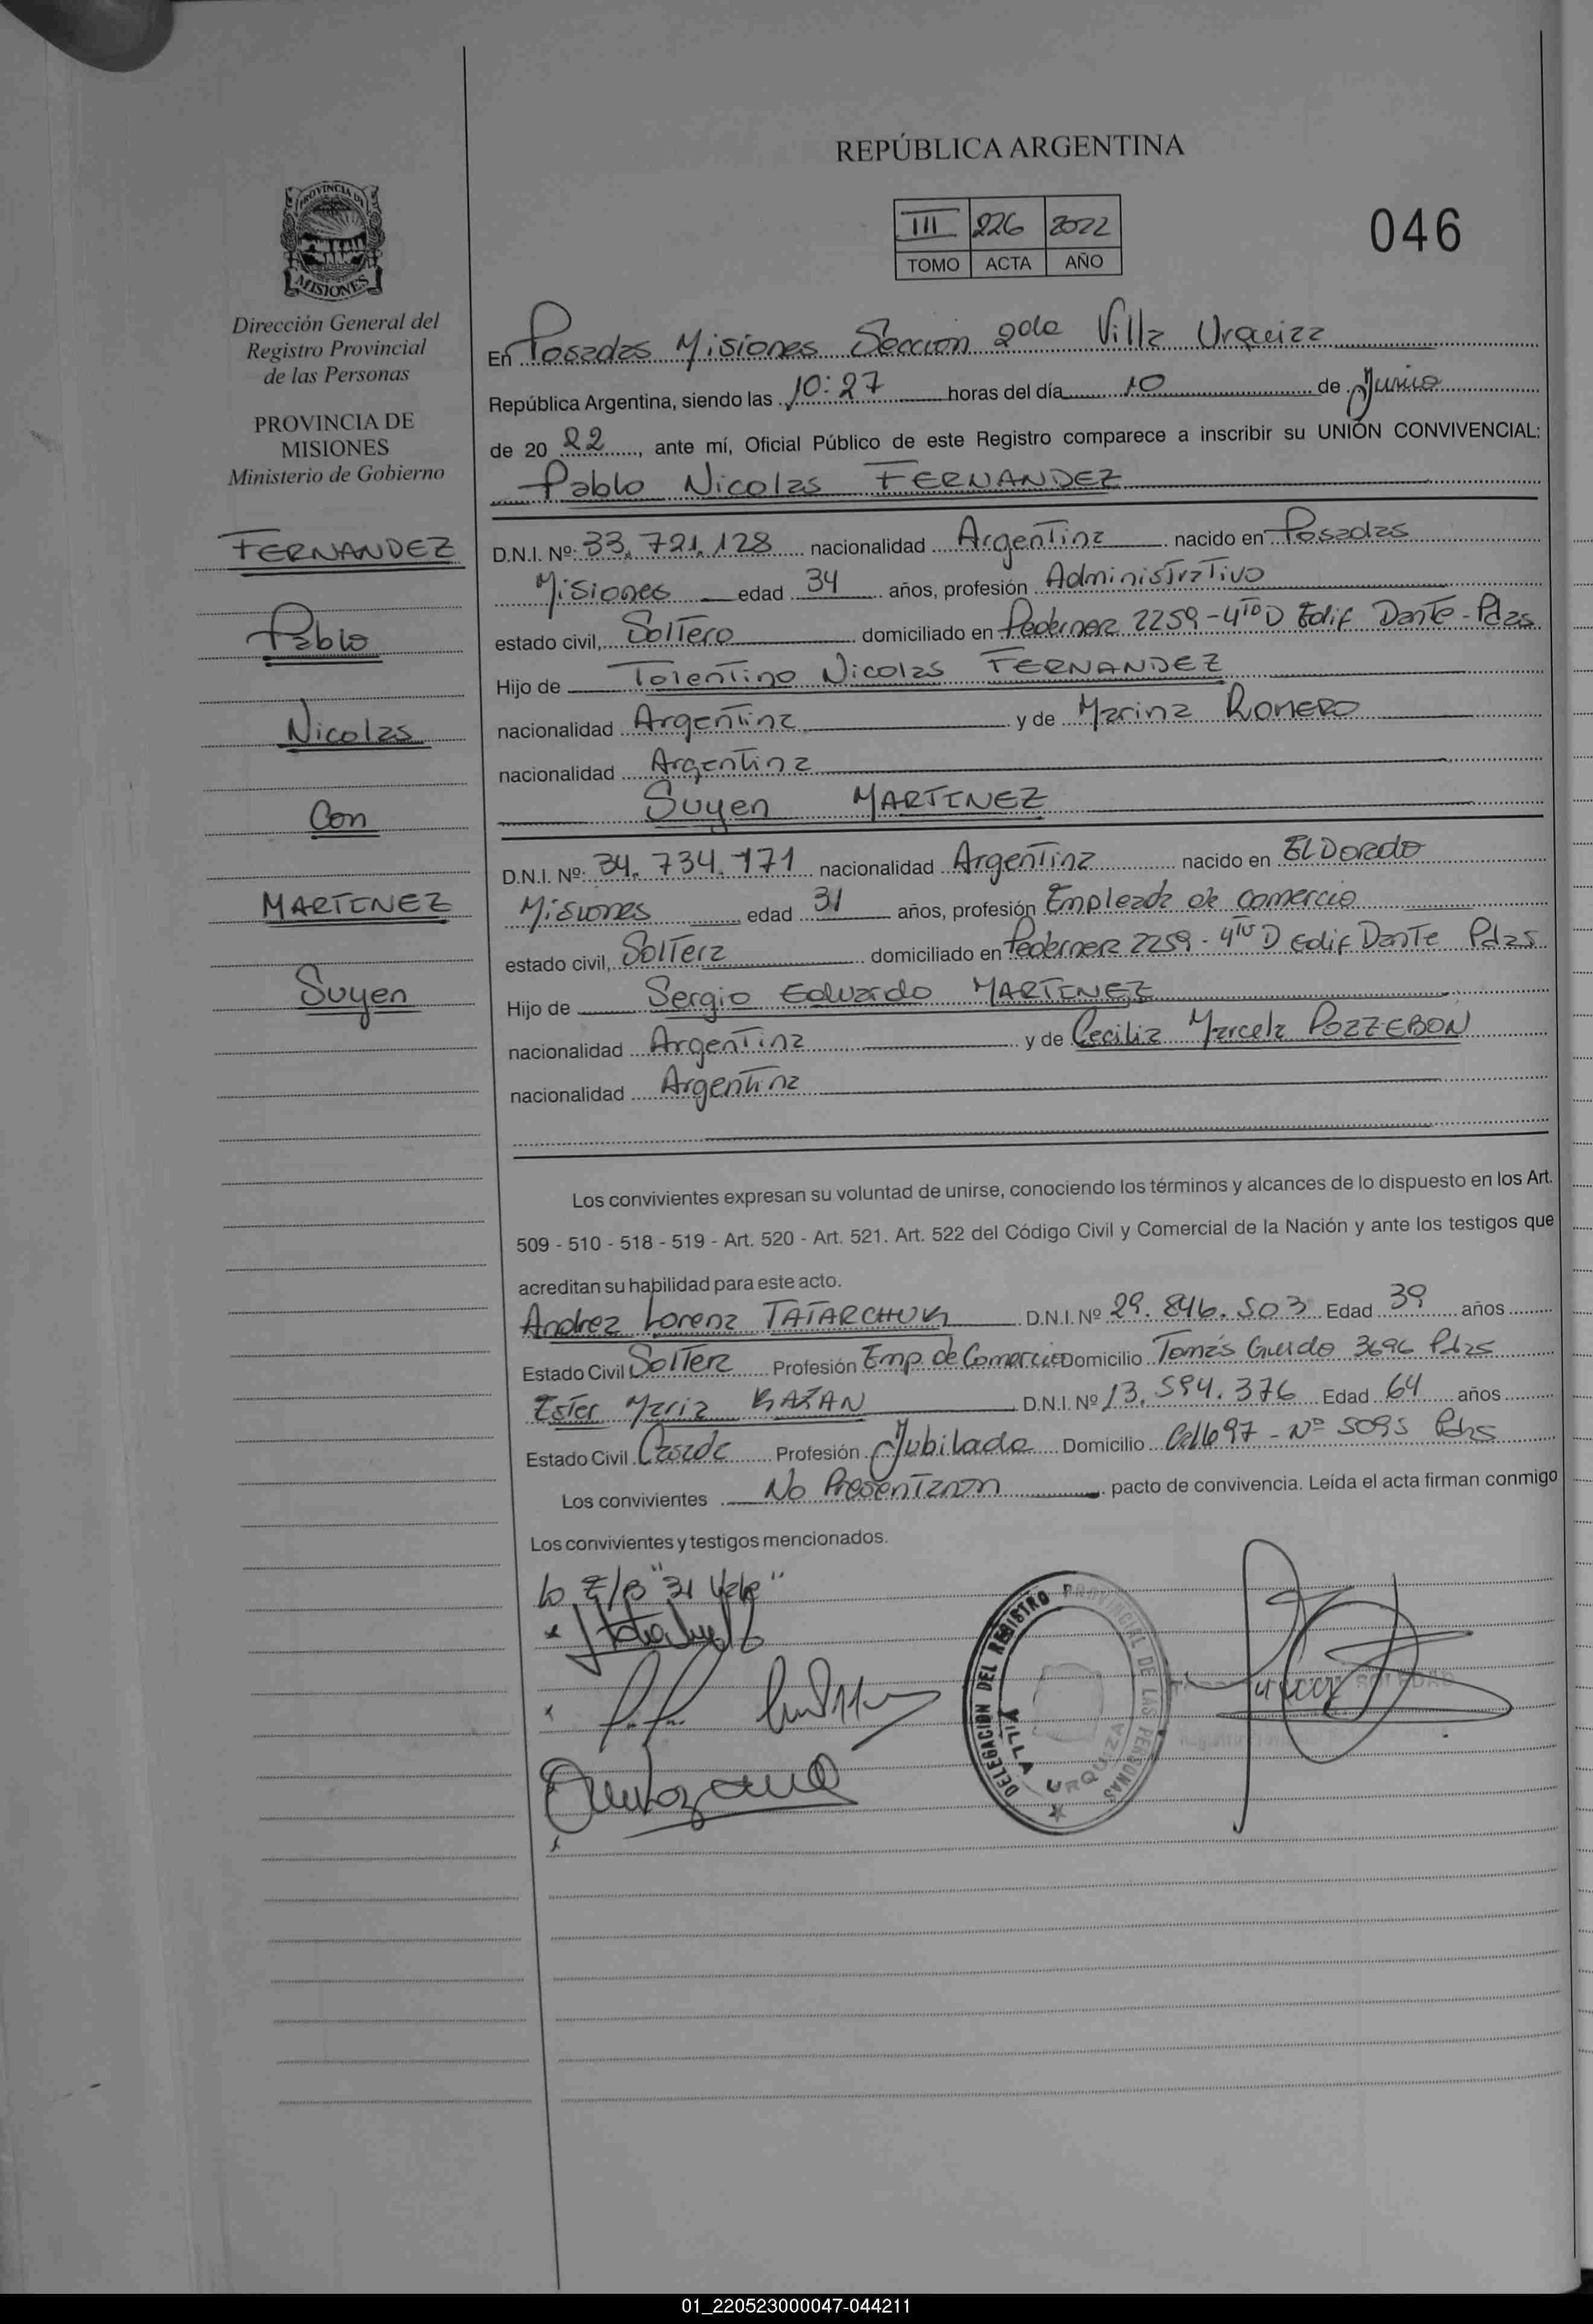 REPÚBLICA ARGENTINA
III 226 2022
TOMO ACTA AÑO
046
PROVINCIA DE
MISIONES
Dirección General del
Registro Provincial
de las Personas
PROVINCIA DE
MISIONES
Ministerio de Gobierno
FERNANDEZ
Pablo
Nicolas
Con
MARTINEZ
Suyen
En Posadas Misiones Sección 2da Villa Urquiza
República Argentina, siendo las 10:27 horas del día 10 de Junio
de 20 22, ante mí, Oficial Público de este Registro comparece a inscribir su UNIÓN CONVIVENCIAL:
Pablo Nicolas FERNANDEZ
D.N.I. Nº: 33.721.128 nacionalidad Argentina nacido en Posadas
Misiones edad 34 años, profesión Administrativo
estado civil, Soltero domiciliado en Pedernera 2259-4to D Edif Dante-Pdas
Hijo de Tolentino Nicolas FERNANDEZ
nacionalidad Argentina y de Marina ROMERO
nacionalidad Argentina
Suyen MARTINEZ
D.N.I. Nº: 34.734.171 nacionalidad Argentina nacido en ElDorado
Misiones edad 31 años, profesión Empleada de comercio
estado civil, Soltera domiciliado en Pedernera 2259-4to D Edif Dante Pdas
Hijo de Sergio Eduardo MARTINEZ
nacionalidad Argentina y de Cecilia Marcela POZZEBON
nacionalidad Argentina
Los convivientes expresan su voluntad de unirse, conociendo los términos y alcances de lo dispuesto en los Art.
509 - 510 - 518 - 519 - Art. 520 - Art. 521. Art. 522 del Código Civil y Comercial de la Nación y ante los testigos que
acreditan su habilidad para este acto.
Andrea Lorena TATARCHUK D.N.I. Nº 29.846.503 Edad 39 años
Estado Civil Soltera Profesión Emp. de Comercio Domicilio Tomás Guido 3696 Pdas
Ester Maria BAZAN D.N.I. Nº 13.594.376 Edad 64 años
Estado Civil Casada Profesión Jubilada Domicilio Calle 97 - Nº 5095 Pdas
Los convivientes No Presentaron pacto de convivencia. Leída el acta firman conmigo
Los convivientes y testigos mencionados.
Lo E/B "31 Vale"
DELEGACIÓN DEL REGISTRO PROVINCIAL DE LAS PERSONAS
VILLA URQUIZA
SOLEDAD
01_220523000047-044211